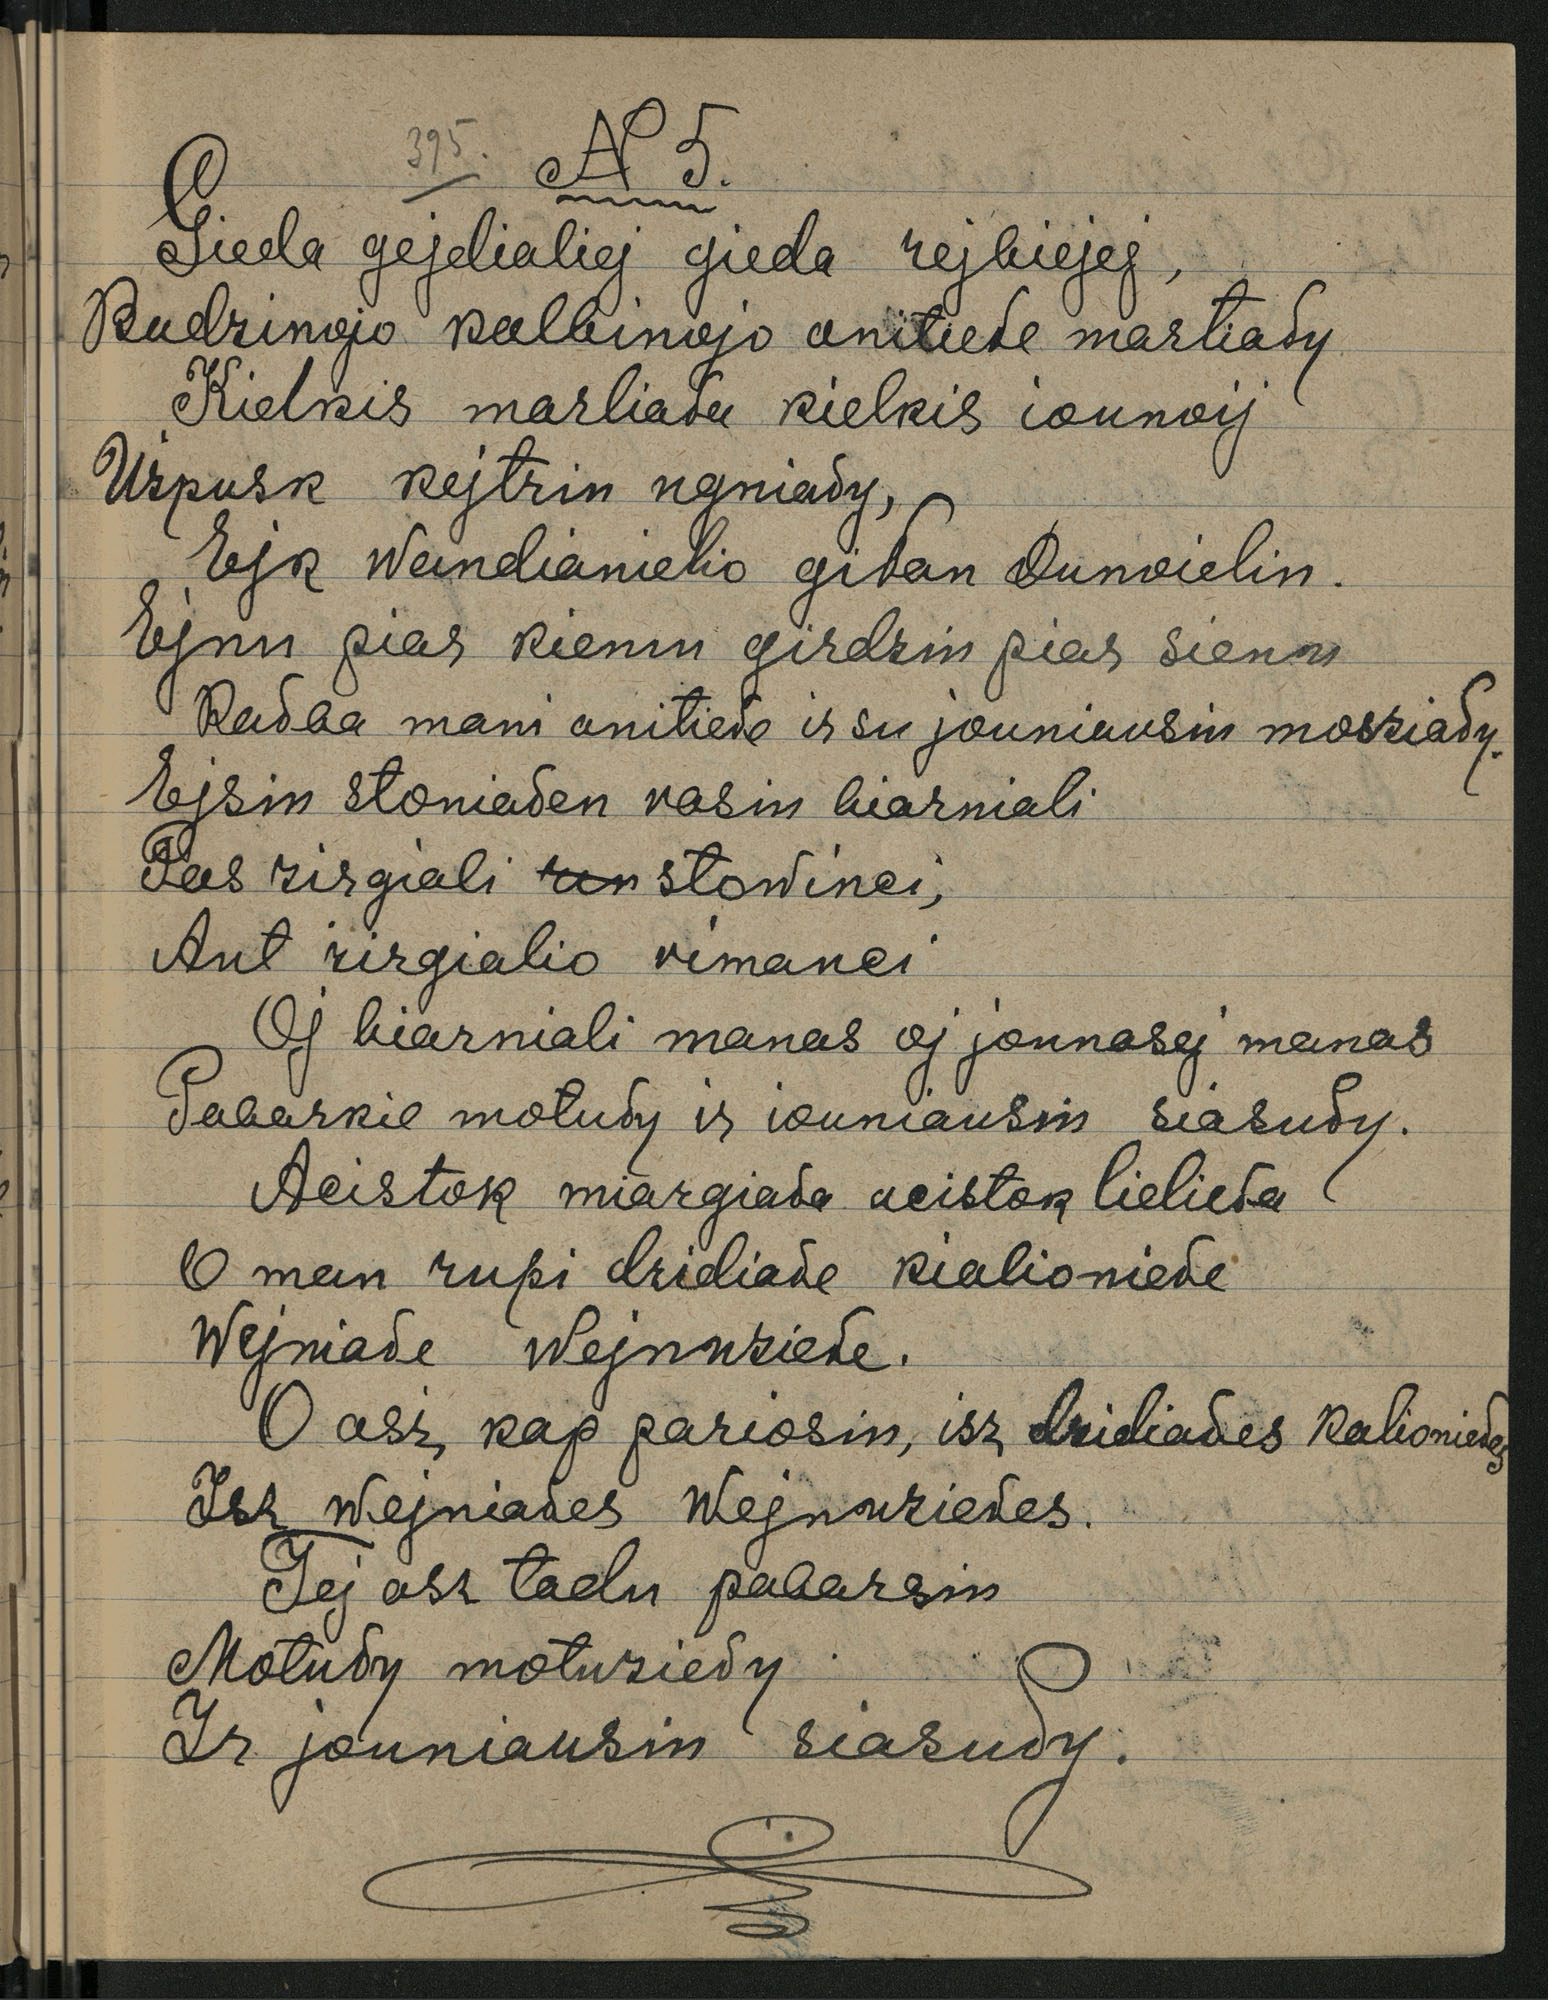 395. № 5.
Gieda gejdialiej gieda rejbiejej,
Budzinojo kalbinojo anitiede martiady
Kielkis marliada kielkis iounoij
Uzpusk kejtrin ugniady,
Ejk wandianielio gidan Dunoielin.
Ejnu pias kienu girdzin pias sienu
Kadba mani anitiede ir su jouniausin mosziady.
Ejsin stoniaden rasin biarniali
Pas zirgiali stowinci,
Ant zirgialio rimanci
Oj biarniali manas oj jounasej manas
Pabarkie motudy ir iouniausin siasudy.
Acistok miargiada acistok lielieda
O man rupi dzidiade kialioniede
Wejniade Wejnuziede.
O asz kap pariosin, isz dzidiades kalioniedes
Isz Wejniades Wejnuziedes.
Tej asz tadu pabarsin
Motudy motuziedy
Ir jouniausin siasudy.